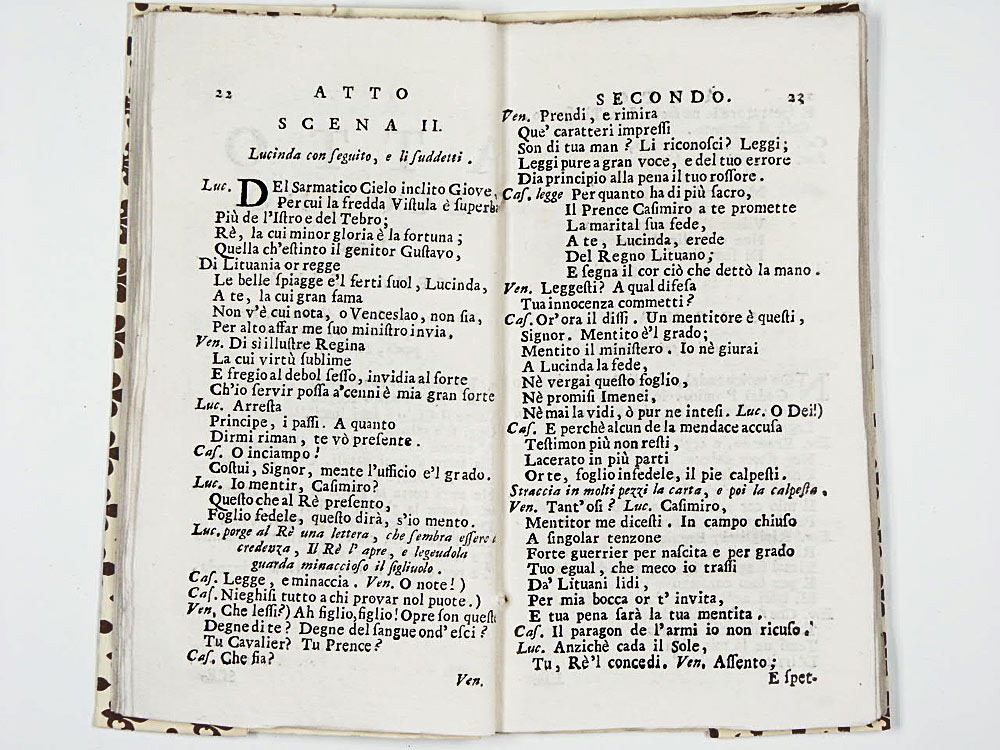 22 ATTO
SCENA II.
Lucinda con ſeguito, e li ſuddetti.
Luc. DEl Sarmatico Cielo inclito Giove,
Per cui la fredda Viſtula è ſuperba
Più de l'Iſtro e del Tebro;
Rè, la cui minor gloria è la fortuna;
Quella ch'eſtinto il genitor Guſtavo,
Di Lituania or regge
Le belle ſpiagge e'l ferti ſuol, Lucinda,
A te, la cui gran fama
Non v'è cui nota, o Venceslao, non ſia,
Per alto affar me ſuo miniſtro invia,
Ven. Di sì illuſtre Regina
La cui virtù ſublime
E fregio al debol ſeſſo, invidia al forte
Ch'io ſervir poſſa a'cenni è mia gran ſorte
Luc. Arreſta
Principe, i paſſi. A quanto
Dirmi riman, te vò preſente.
Caſ. O inciampo!
Coſtui, Signor, mente l'ufficio e'l grado.
Luc. Io mentir, Caſimiro?
Queſto che al Rè preſento,
Foglio fedele, queſto dirà, s'io mento.
Luc. porge al Rè una lettera, che ſembra eſſere
credenza, Il Rè l'apre, e legendola
guarda minaccioſo il figliuolo.
Caſ. Legge, e minaccia. Ven. O note!)
Caſ. Nieghiſi tutto a chi provar nol puote.)
Ven. Che leſſi?) Ah figlio, figlio! Opre ſon queſte
Degne di te? Degne del ſangue ond'eſci?
Tu Cavalier? Tu Prence?
Caſ. Che fia?
Ven.
SECONDO. 23
Ven. Prendi, e rimira
Que' caratteri impreſſi
Son di tua man? Li riconoſci? Leggi;
Leggi pure a gran voce, e del tuo errore
Dia principio alla pena il tuo roſſore.
Caſ. legge Per quanto ha di più ſacro,
Il Prence Caſimiro a te promette
La marital ſua fede,
A te, Lucinda, erede
Del Regno Lituano;
E ſegna il cor ciò che dettò la mano.
Ven. Leggeſti? A qual difeſa
Tua innocenza commetti?
Caſ. Or'ora il diſſi. Un mentitore è queſti,
Signor. Mentito è'l grado;
Mentito il miniſtero. Io nè giurai
A Lucinda la fede,
Nè vergai queſto foglio,
Nè promiſi Imenei,
Nè mai la vidi, ò pur ne inteſi. Luc. O Dei!)
Caſ. E perchè alcun de la mendace accuſa
Teſtimon più non reſti,
Lacerato in più parti
Or te, foglio infedele, il pie calpeſti.
Straccia in molti pezzi la carta, e poi la calpeſta.
Ven. Tant'oſi? Luc. Caſimiro,
Mentitor me diceſti. In campo chiuſo
A ſingolar tenzone
Forte guerrier per naſcita e per grado
Tuo egual, che meco io traſſi
Da' Lituani lidi,
Per mia bocca or t' invita,
E tua pena ſarà la tua mentita.
Caſ. Il paragon de l'armi io non ricuſo.
Luc. Anzichè cada il Sole,
Tu, Rè'l concedi. Ven. Aſſento;
E ſpet-